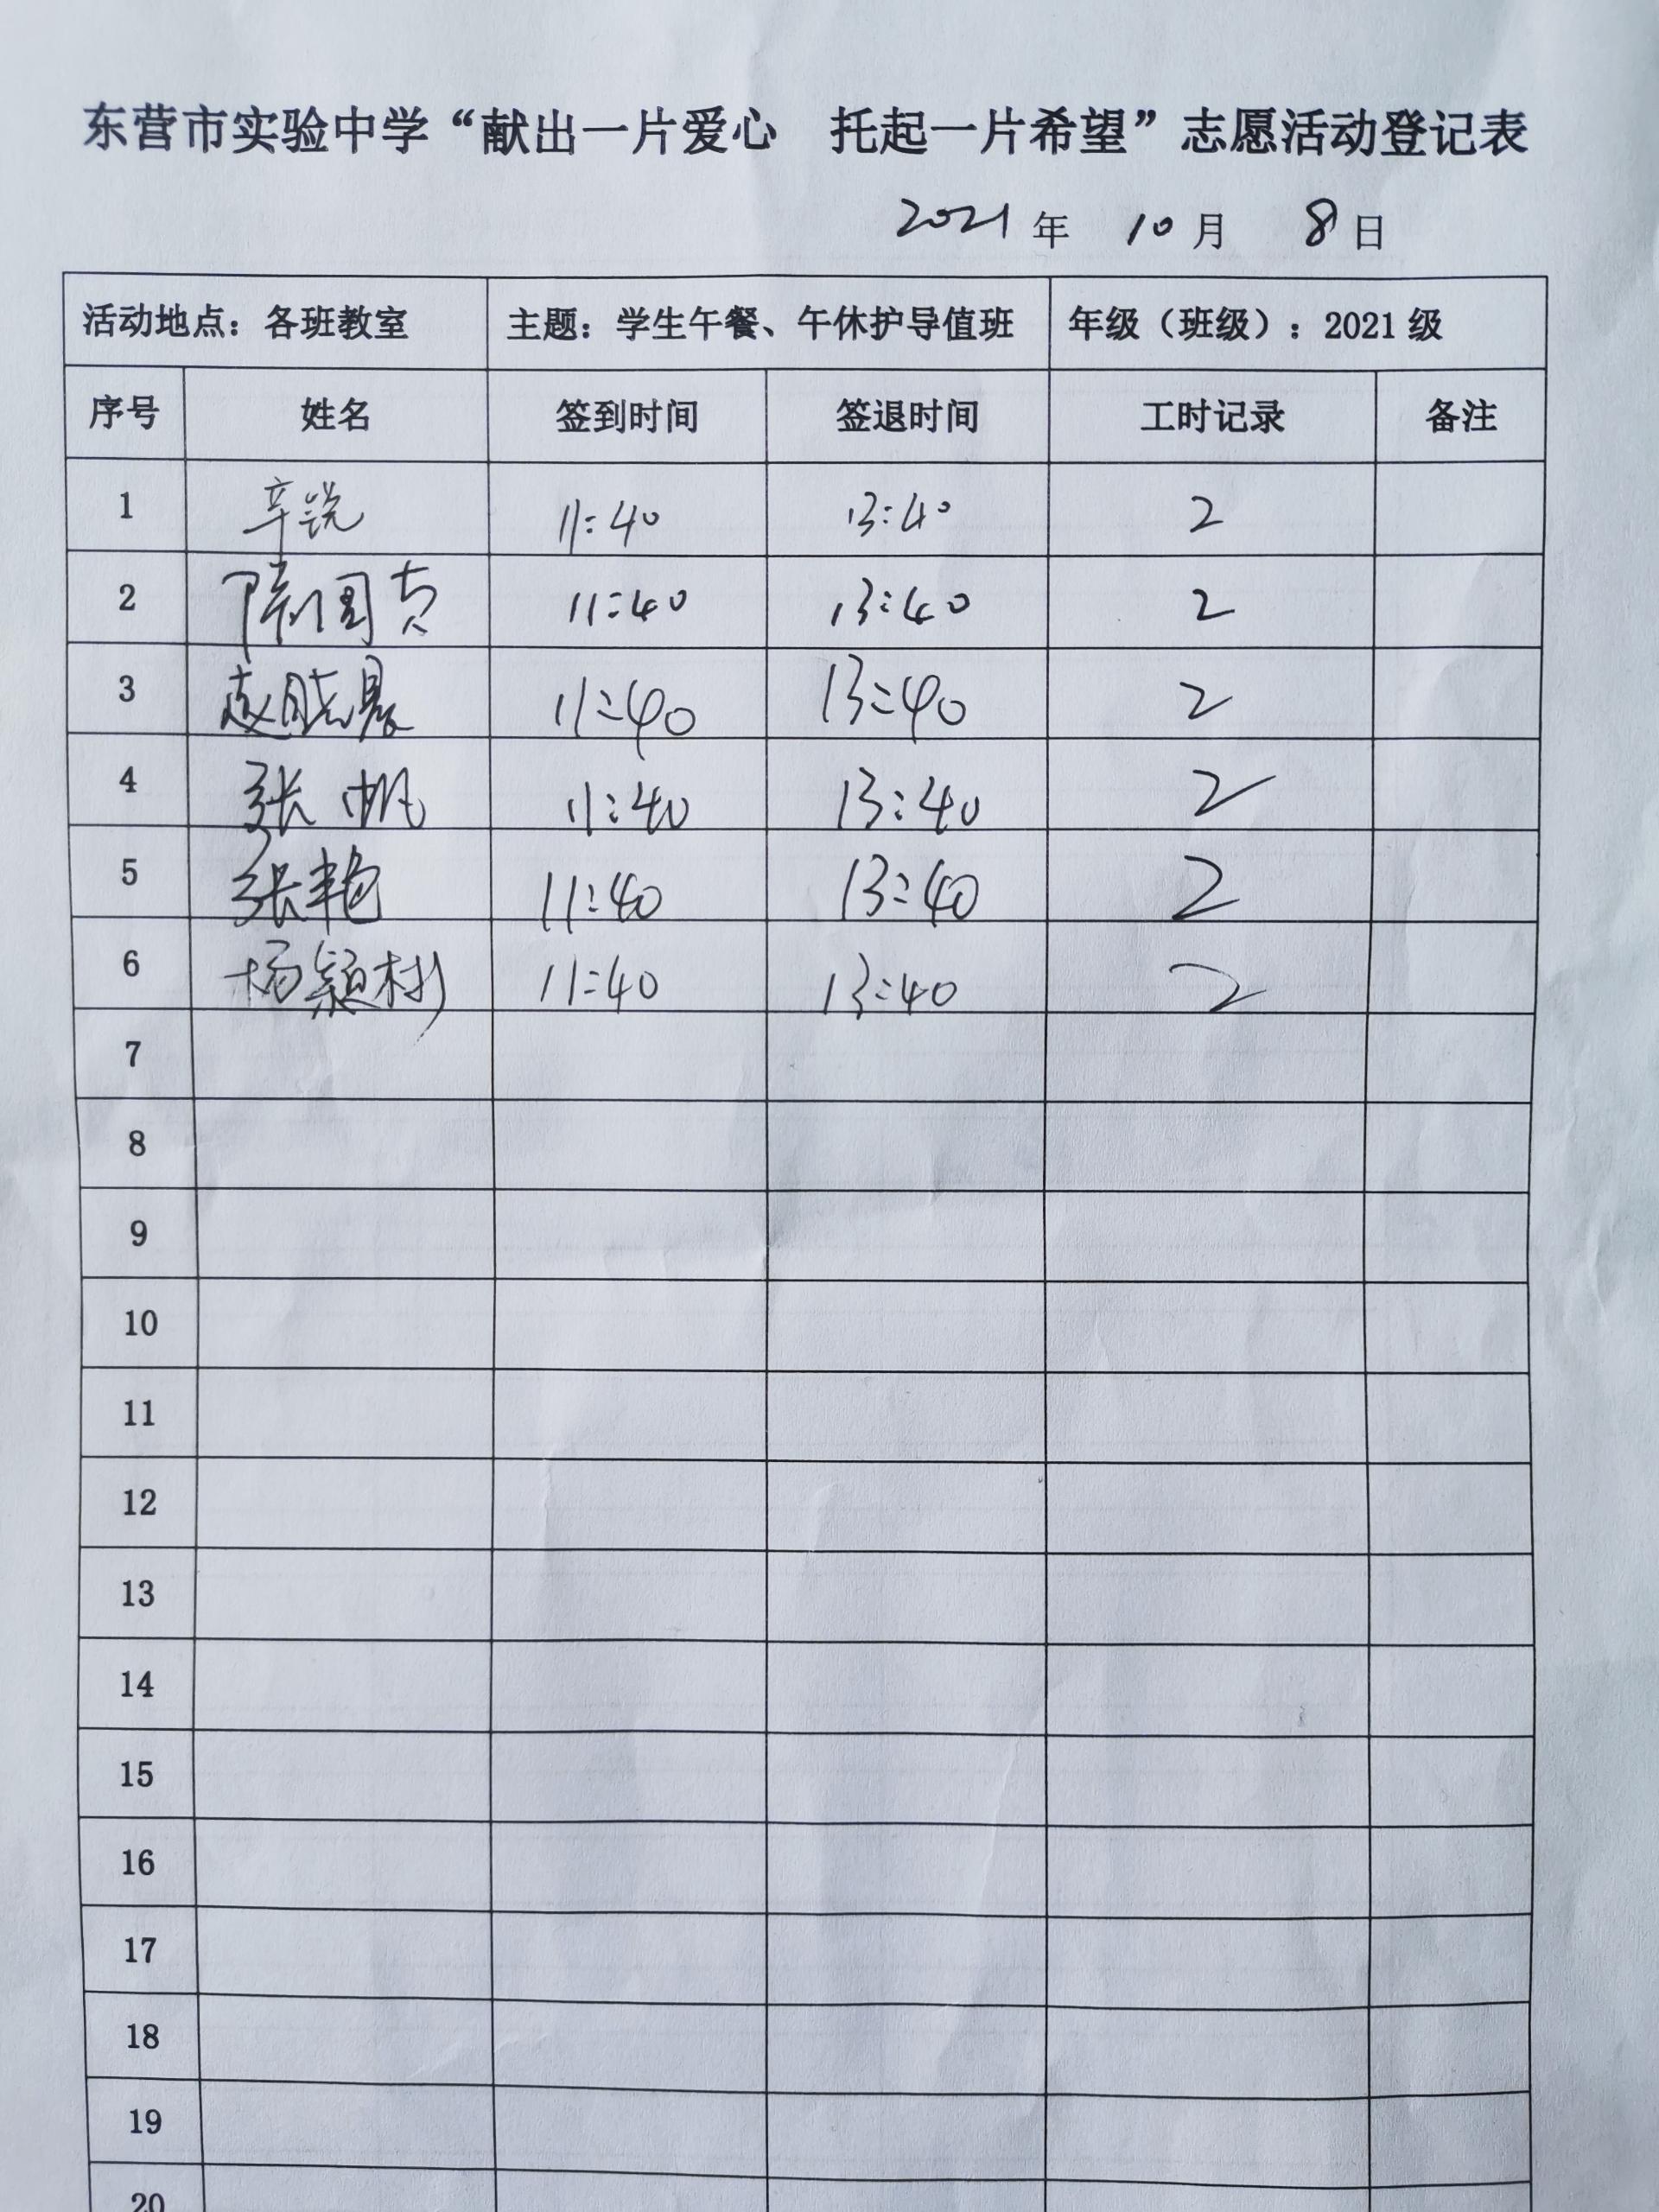 东营市实验中学“献出一片爱心 托起一片希望”志愿活动登记表
2021 年 10 月 8 日
活动地点：各班教室 主题：学生午餐、午休护导值班 年级（班级）：2021 级
序号 姓名 签到时间 签退时间 工时记录 备注
1 辛锐 11:40 13:40 2
2 11:40 13:40 2
3 赵晓晨 11:40 13:40 2
4 张帆 11:40 13:40 2
5 张艳 11:40 13:40 2
6 杨颖树 11:40 13:40 2
7
8
9
10
11
12
13
14
15
16
17
18
19
20